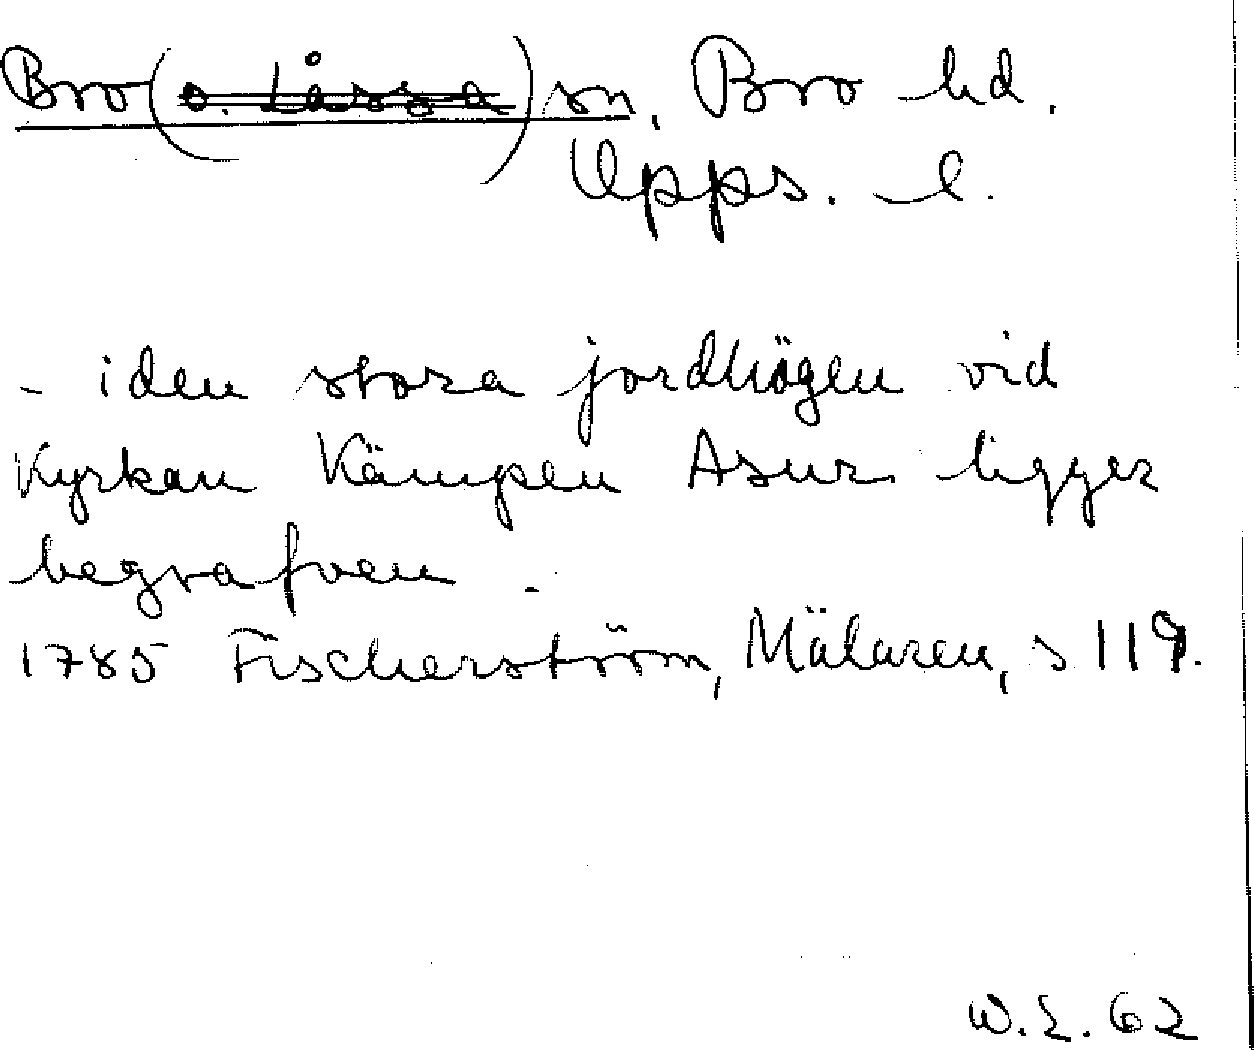 Bro (o. Låssa) sn, Bro hd.
Upps. l.
- i den stora jordhögen vid
Kyrkan Kämpen Asur ligger
begrafven -
1785 Fischerström, Mälaren, s 119.
W.E. 62